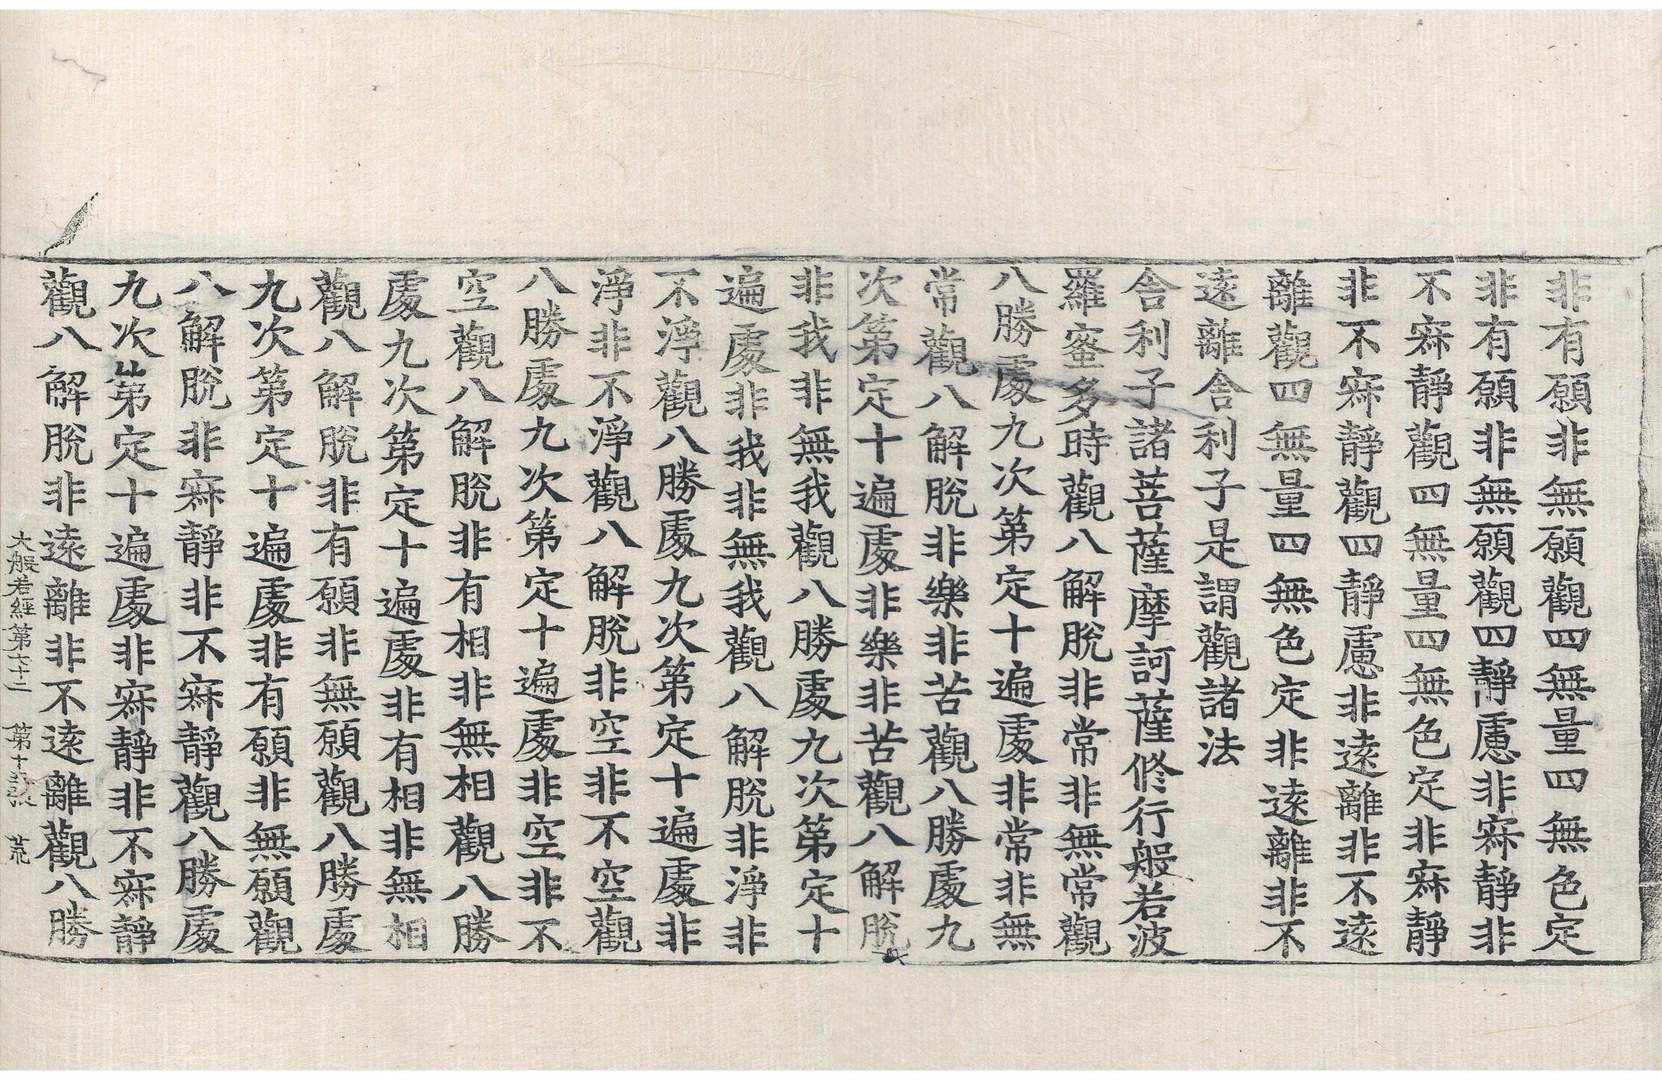 非有願非無願觀四無量四無色定
非有願非無願觀四靜慮非寂靜非
不寂靜觀四無量四無色定非寂靜
非不寂靜觀四靜慮非遠離非不遠
離觀四無量四無色定非遠離非不
遠離舍利子是謂觀諸法
舍利子諸菩薩摩訶薩修行般若波
羅蜜多時觀八解脫非常非無常觀
八勝處九次第定十遍處非常非無
常觀八解脫非樂非苦觀八勝處九
次第定十遍處非樂非苦觀八解脫
非我非無我觀八勝處九次第定十
遍處非我非無我觀八解脫非淨非
不淨觀八勝處九次第定十遍處非
淨非不淨觀八解脫非空非不空觀
八勝處九次第定十遍處非空非不
空觀八解脫非有相非無相觀八勝
處九次第定十遍處非有相非無相
觀八解脫非有願非無願觀八勝處
九次第定十遍處非有願非無願觀
八解脫非寂靜非不寂靜觀八勝處
九次第定十遍處非寂靜非不寂靜
觀八解脫非遠離非不遠離觀八勝
大般若經第七十二 第十張 荒